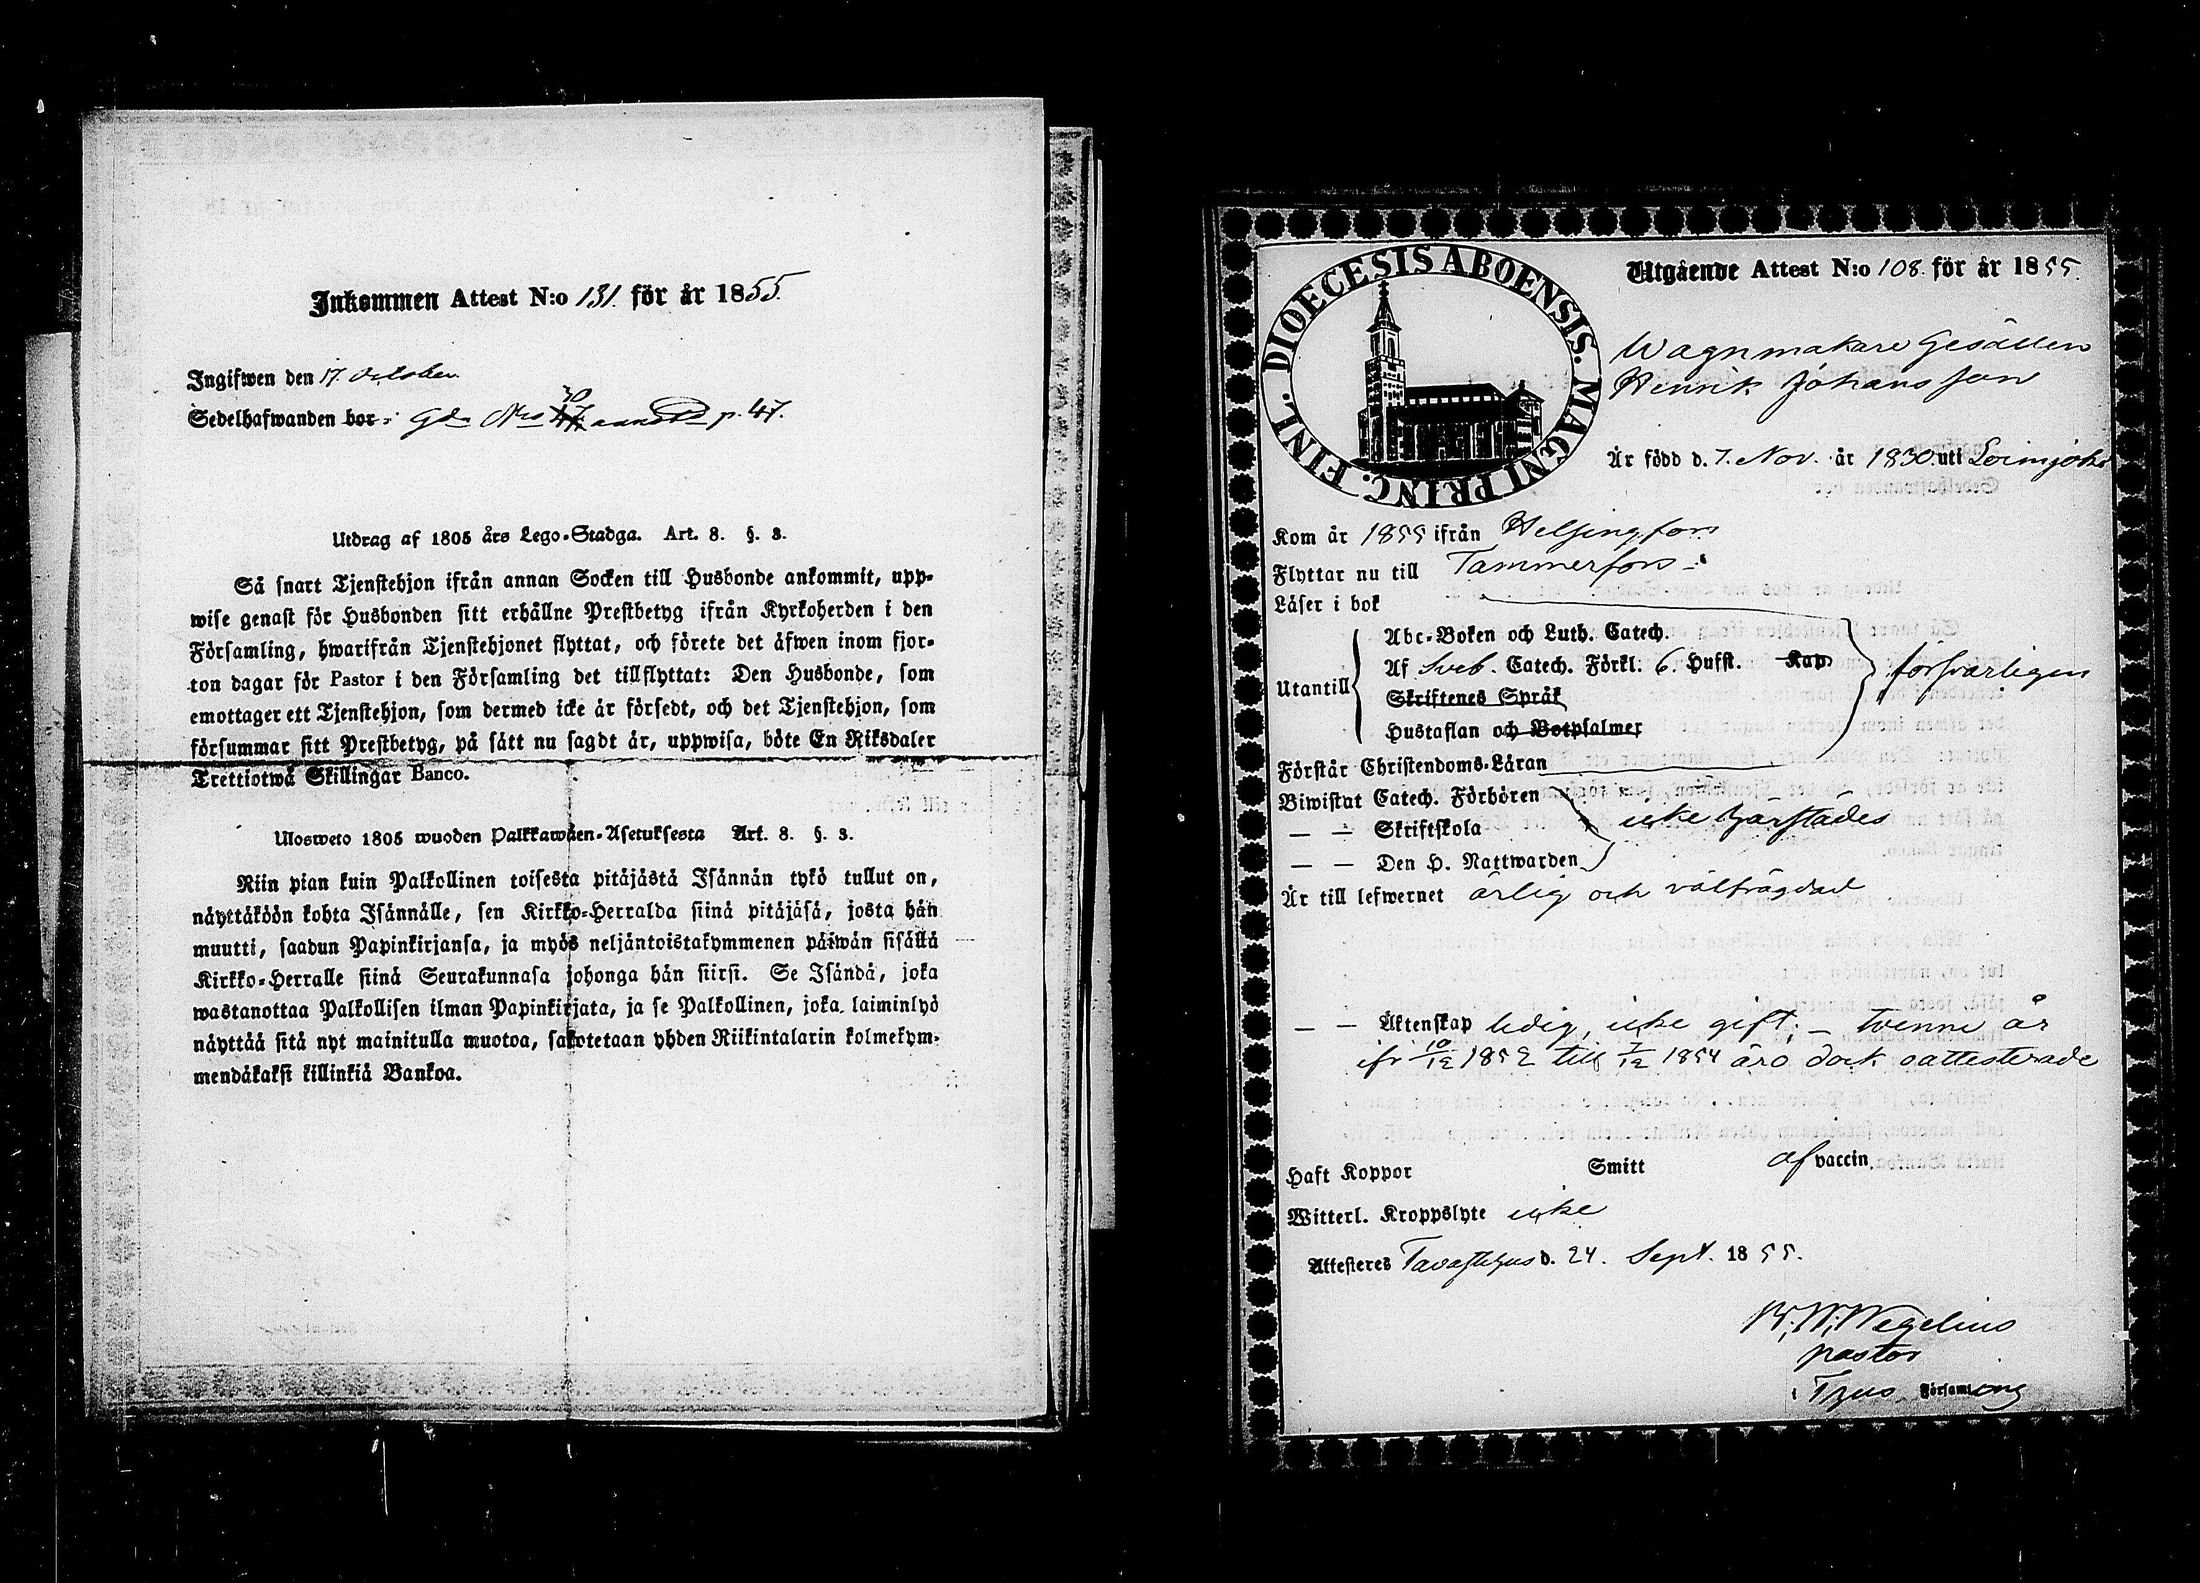 Inkommen Attest N:o 131. för år 1855.
Ingifwen den 17. October
Sedelhafwanden bor i Gdn N:o 47. 30 p. 47.
Utdrag af 1805 års Lego-Stadga. Art. 8. §. 3.
Så snart Tjenstehjon ifrån annan Socken till Husbonde ankommit, upp-
wise genast för Husbonden sitt erhållne Prestbetyg ifrån Kyrkoherden i den
Församling, hwarifrån Tjenstehjonet flyttat, och förete det äfwen inom fjor-
ton dagar för Pastor i den Församling det tillflyttat: Den Husbonde, som
emottager ett Tjenstehjon, som dermed icke är försedt, och det Tjenstehjon, som
försummar sitt Prestbetyg, på sätt nu sagdt är, uppwisa, böte En Riksdaler
Trettiotwå Skillingar Banco.
Ulosweto 1805 wuoden Palkkawäen-Asetuksesta Art. 8. §. 3.
Niin pian kuin Palkollinen toisesta pitäjästä Isännän tykö tullut on,
näyttäköön kohta Isännälle, sen Kirkko-Herralda siinä pitäjäsä, josta hän
muutti, saadun Papinkirjansa, ja myös neljäntoistakymmenen päiwän sisällä
Kirkko-Herralle siinä Seurakunnasa johonga hän siirsi. Se Isändä, joka
wastanottaa Palkollisen ilman Papinkirjata, ja se Palkollinen, joka laiminlyö
näyttää sitä nyt mainitulla muotoa, sakotetaan yhden Riikintalarin kolmekym-
mendäkaksi killinkiä Bankoa.
DIOECESIS ABOENSIS. MAGNI PRINC. FINL.
Utgående Attest N:o 108. för år 1855.
Wagnmakare Gesällen
Henrik Johansson
Är född d. 7. Nov. år 1830. uti Loimjoki
Kom år 1855 ifrån Helsingfors
Flyttar nu till Tammerfors
Läser i bok
Utantill
Abc-Boken och Luth. Catech.
Af Sveb. Catech. Förkl. 6. Hufst. Kap.
Skriftenes Språk
Hustaflan och Botpsalmer
försvarligen
Förstår Christendoms-Läran
Biwistat Catech. Förhören
— — Skriftskola
— — Den H. Nattwarden
icke härstädes
Är till lefwernet ärlig och välfrägdad
— — Äktenskap ledig, icke gift; — tvenne år
ifr 10/12 1852 till 7/12 1854 äro dock oattesterade
Haft Koppor Smitt af vaccin.
Witterl. Kroppslyte icke
Attesteres Tavastehus d. 24. Sept. 1855.
Wegelius
pastor
i Thus. Församling